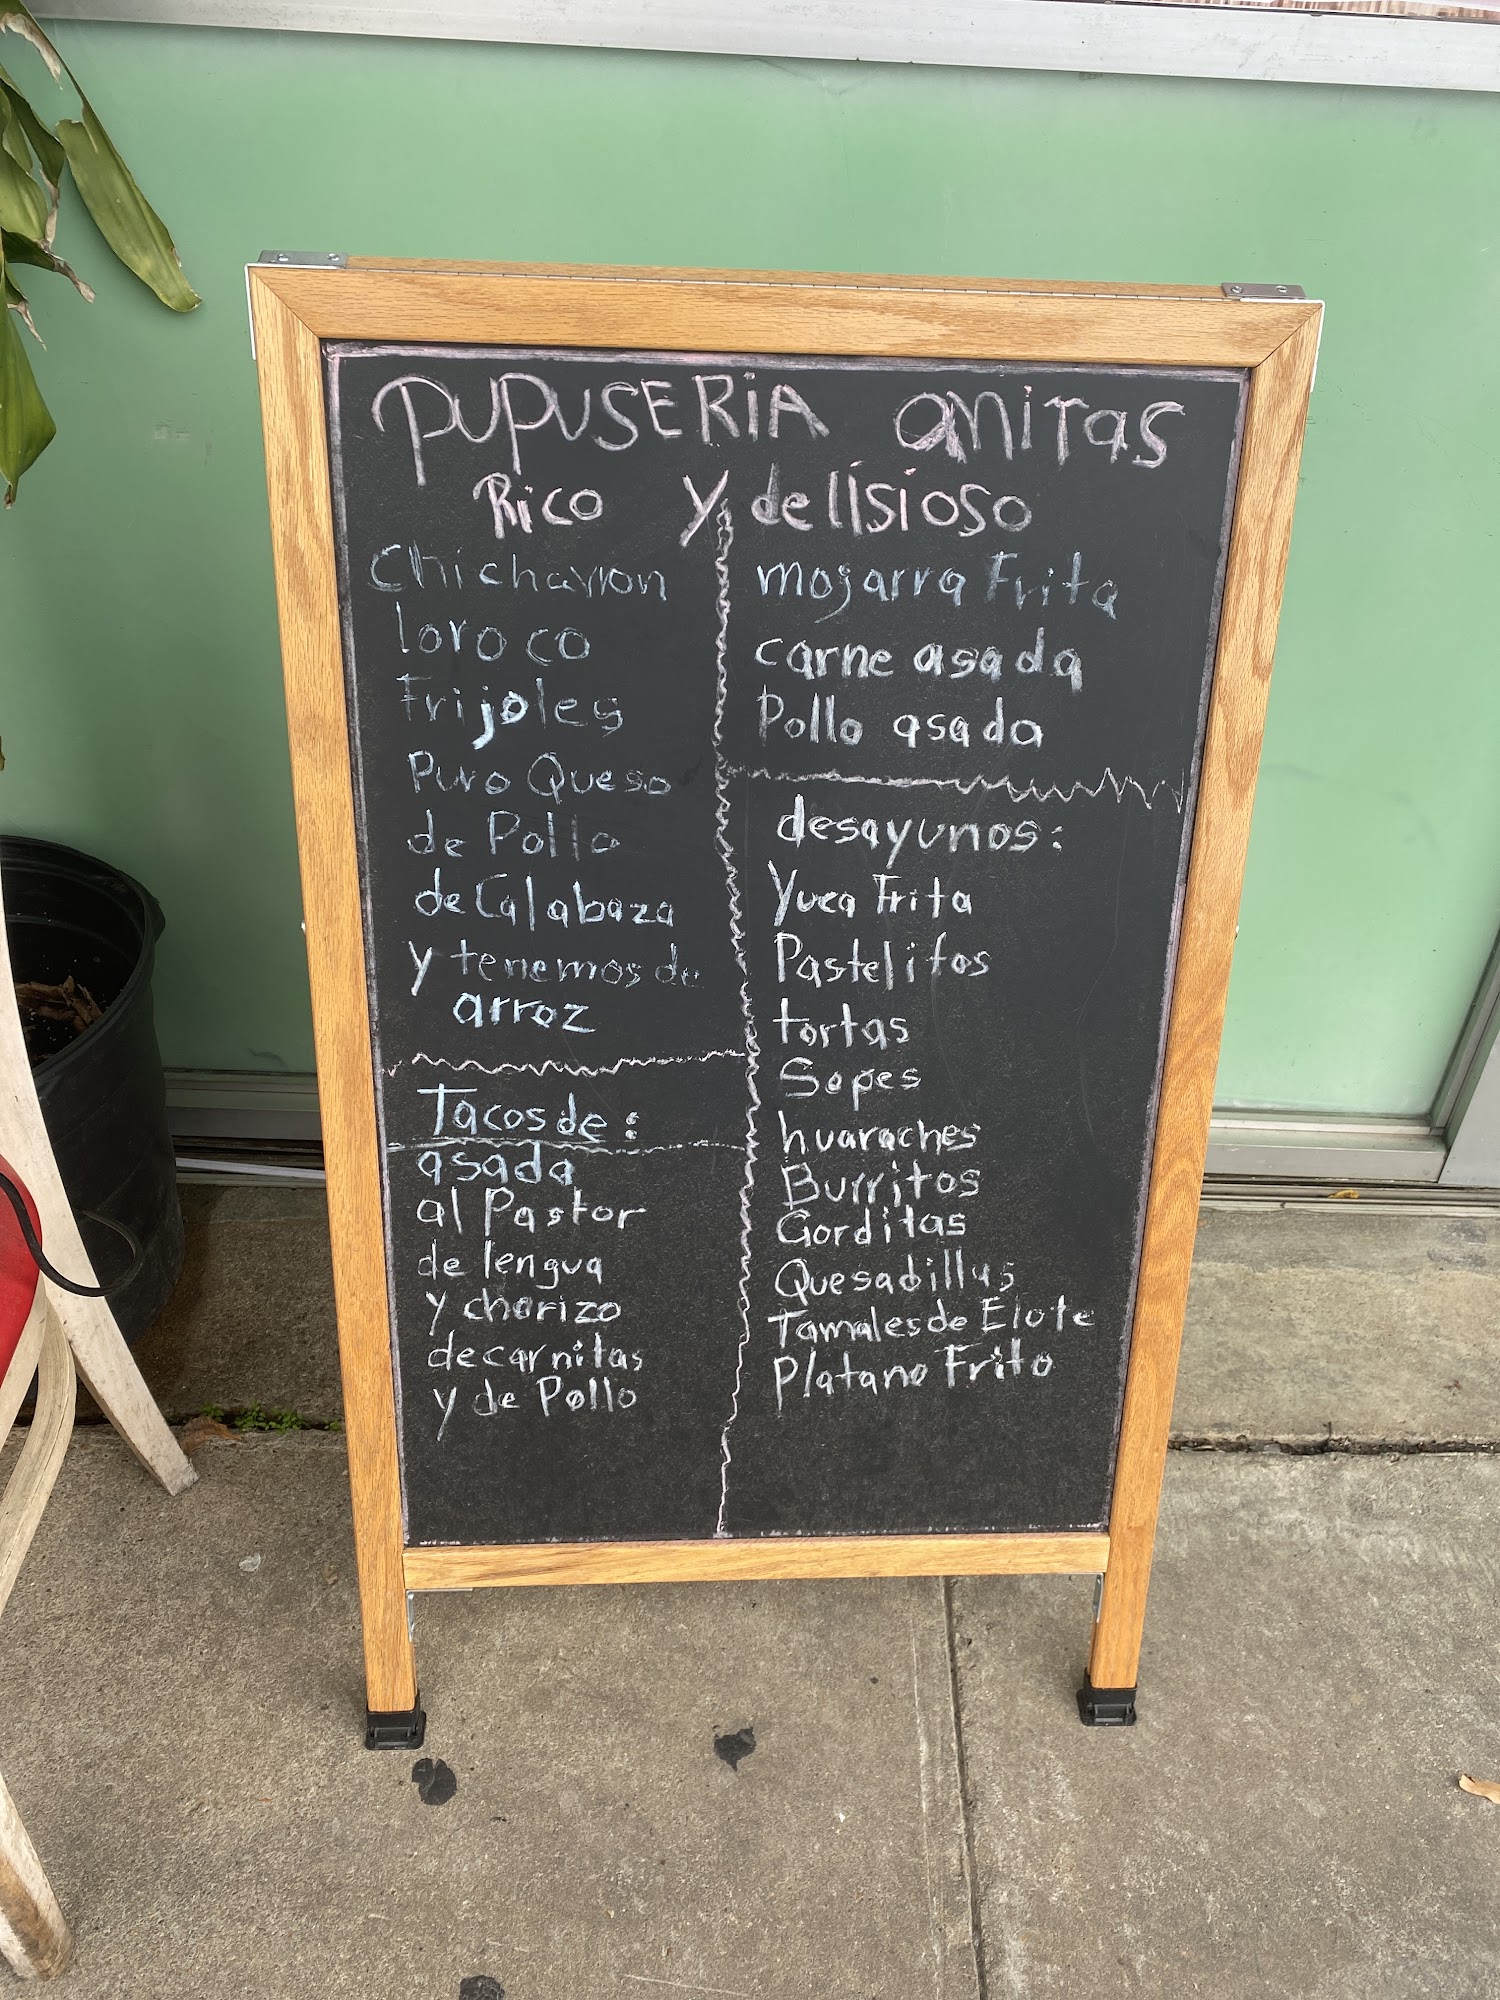 PUPUSERiA aNiTaS
Rico y delisioso
Chicharron
loroco
Frijoles
Puro Queso
de Pollo
de Calabaza
y tenemos de
arroz
Tacos de:
asada
al Pastor
de lengua
y chorizo
de carnitas
y de Pollo
mojarra Frita
carne asada
Pollo asada
desayunos:
Yuca Frita
Pastelitos
tortas
Sopes
huaraches
Burritos
Gorditas
Quesadillas
Tamales de Elote
Platano Frito